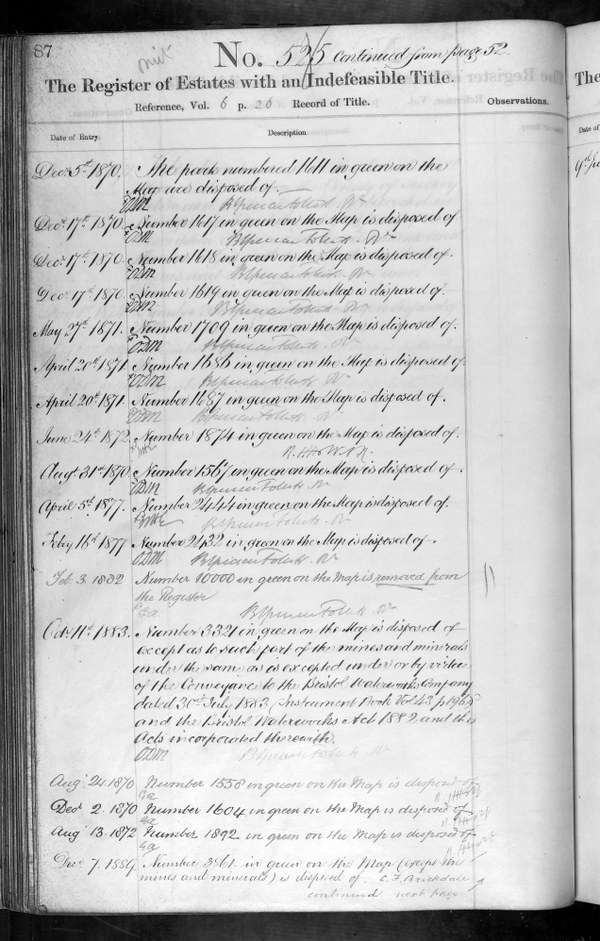 87
No. 525 Continued from page 52
The Register of Estates with an Indefeasible Title.
Reference, Vol. 6 p. 26 Record of Title.
Observations.
Date of Entry.
Description.
Decr. 5th 1870. The park numbered 1611 in green on the
Map are disposed of.
ODM
Decr. 17th 1870. Number 1617 in green on the Map is disposed of
ODM
Decr. 17th 1870. Number 1618 in green on the Map is disposed of.
ODM
Decr 17th 1870. Number 1619 in green on the Map is disposed of.
ODM
May 27th 1871. Number 1709 in green on the Map is disposed of.
ODM
April 20th 1871. Number 1686 in green on the Map is disposed of.
ODM
April 20th 1871. Number 1687 in green on the Map is disposed of.
ODM
June 24th 1872. Number 1874 in green on the Map is disposed of.
Augt 31st 1870. Number 1567 in green on the Map is disposed of.
ODM
April 5th 1877. Number 2444 in green on the Map is disposed of.
Feby 16th 1877 Number 2432 in green on the Map is disposed of
ODM
Feb. 3 1882 Number 10000 in green on the Map is removed from
the Register
Octr 11th 1883. Number 3321 in green on the Map is disposed of
except as to such part of the mines and minerals
under the same as is excepted under or by virtue
of the Conveyance to the Bristol Waterworks Company
dated 30th July 1883 (Instrument Book Vol 43 p
and the Bristol Waterworks Act 1882 and the
Acts incorporated therewith.
ODM
Augt 24 1870 Number 1558 in green on the Map is disposed of
Decr 2 1870 Number 1604 in green on the Map is disposed of
Augt 13 1872 Number 1892 in green on the Map is disposed of
Decr 7. 1884 Number 3861 in green on the Map (except the
mines and minerals) is disposed of. C. F. Brickdale
continued next page